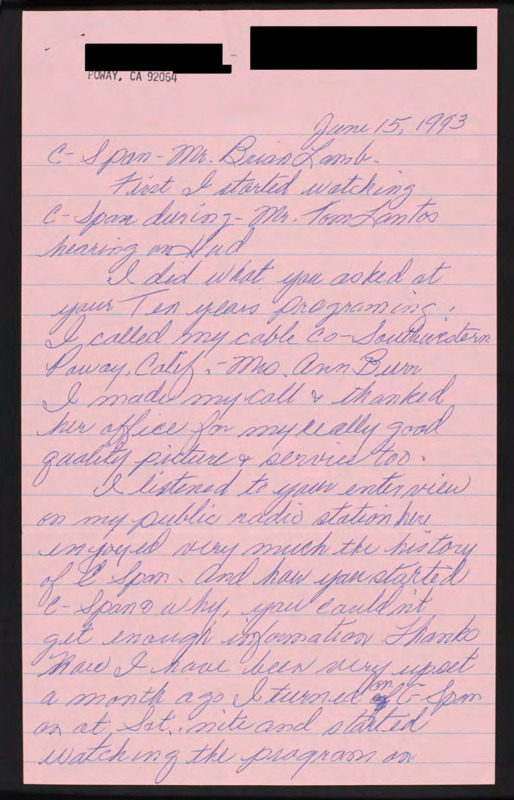 POWAY, CA 92064
June 15, 1993
C-Span - Mr. Brian Lamb.
First I started watching
C-Span during - Mr. Tom Lantos
hearing on Hud
I did what you asked at
your Ten years programing.
I called my cable Co - Southwestern
Poway, Calif. - Mrs. Ann Burr
I made my call & thanked
her office for my really good
quality picture & service too.
I listened to your enterview
on my public radio station here
enjoyed very much the history
of C Span. And how you started
C-Span & why, you couldn't
get enough information Thanks
Now I have been very upset
a month ago I turned on C-Span
on at Sat. nite and started
watching the program on